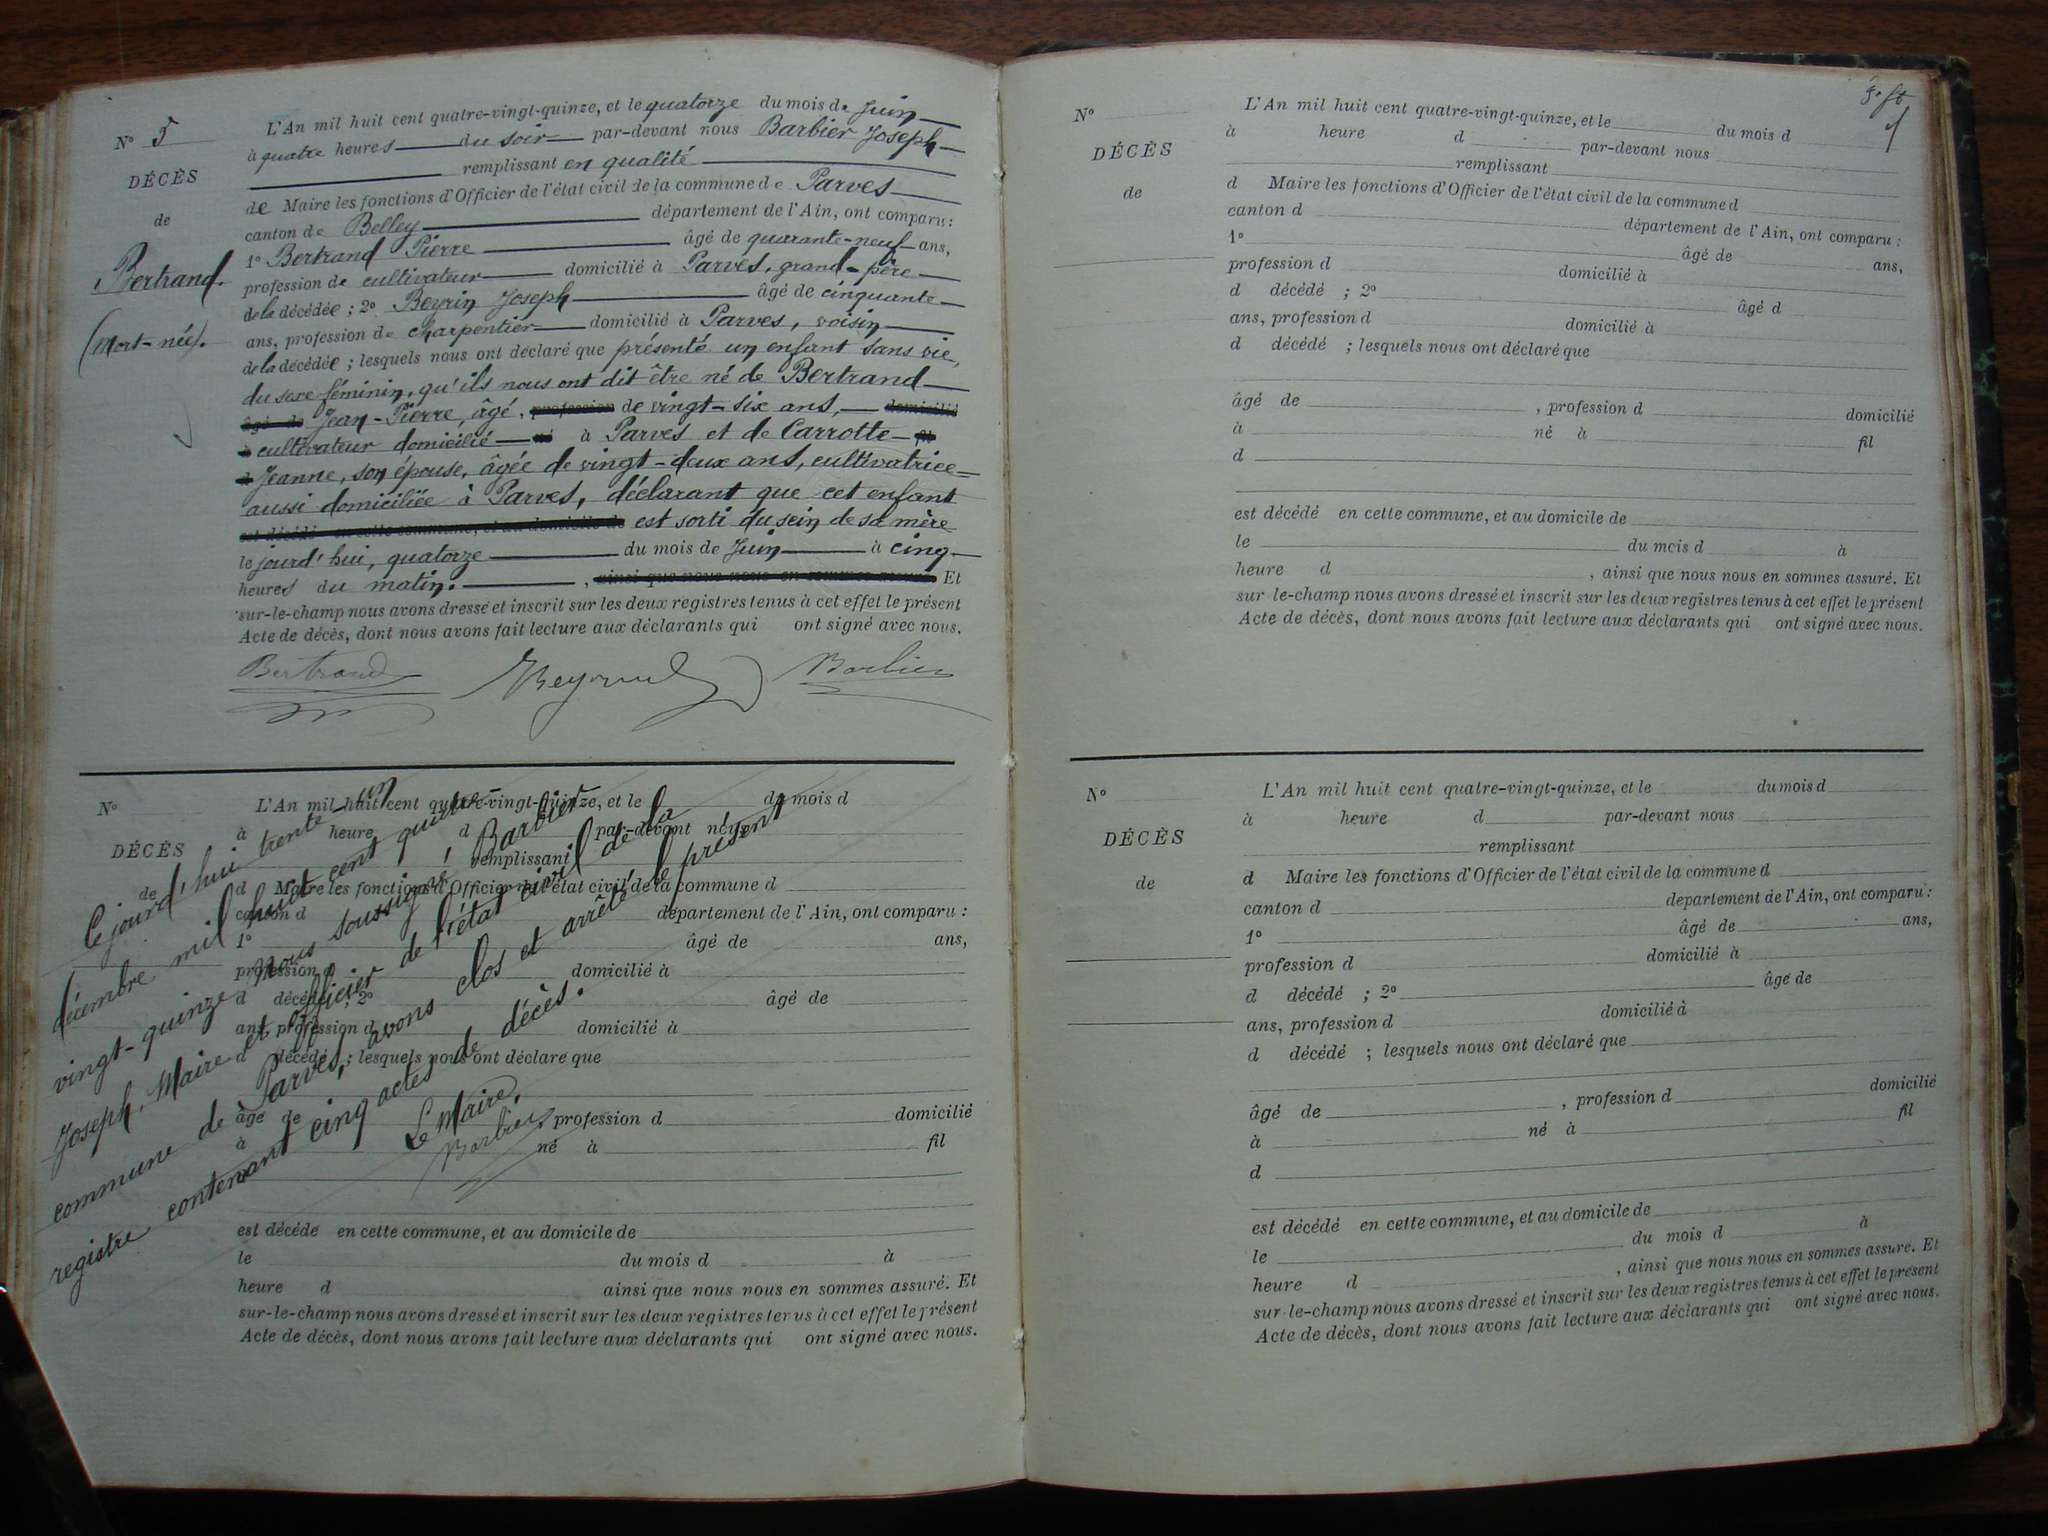 N° 5
DÉCÈS
de
Bertrand.
(Mort-née).
L'An mil huit cent quatre-vingt-quinze, et le quatorze du mois de Juin
à quatre heures du soir par-devant nous Barbier Joseph
remplissant en qualité
de Maire les fonctions d'Officier de l'état civil de la commune de Parves
canton de Belley département de l'Ain, ont comparu :
1° Bertrand Pierre âgé de quarante-neuf ans,
profession de cultivateur domicilié à Parves, grand-père
de la décédée ; 2° Beyrin Joseph âgé de cinquante
ans, profession de charpentier domicilié à Parves, voisin
de la décédée ; lesquels nous ont déclaré que présenté un enfant sans vie,
du sexe féminin, qu'ils nous ont dit être né de Bertrand
âgé de Jean-Pierre, âgé, profession de vingt-six ans, domicilié
à cultivateur domicilié né à Parves et de Carrotte fil
d Jeanne, son épouse, âgée de vingt-deux ans, cultivatrice
aussi domiciliée à Parves, déclarant que cet enfant
est décédé en cette commune, et au domicile de est sorti du sein de sa mère
le jourd'hui, quatorze du mois de Juin à cinq
heures du matin. , ainsi que nous nous en sommes assuré. Et
sur-le-champ nous avons dressé et inscrit sur les deux registres tenus à cet effet le présent
Acte de décès, dont nous avons fait lecture aux déclarants qui ont signé avec nous.
Bertrand Barbier
N°
DÉCÈS
de
L'An mil huit cent quatre-vingt-quinze, et le du mois d
à heure d par-devant nous
remplissant
d Maire les fonctions d'Officier de l'état civil de la commune d
canton d département de l'Ain, ont comparu :
1° âgé de ans,
profession d domicilié à
d décédé ; 2° âgé de
ans, profession d domicilié à
d décédé ; lesquels nous ont déclaré que
âgé de , profession d domicilié
à né à fil
est décédé en cette commune, et au domicile de
le du mois d à
heure d ainsi que nous nous en sommes assuré. Et
sur-le-champ nous avons dressé et inscrit sur les deux registres tenus à cet effet le présent
Acte de décès, dont nous avons fait lecture aux déclarants qui ont signé avec nous.
Ce jourd'hui trente-un
décembre mil huit cent quatre-
vingt-quinze Nous soussigné, Barbier
Joseph, Maire et officier de l'état civil de la
commune de Parves, avons clos et arrêté le présent
registre contenant cinq actes de décès.
Le Maire,
Barbier
N°
DÉCÈS
de
L'An mil huit cent quatre-vingt-quinze, et le du mois d
à heure d par-devant nous
remplissant
d Maire les fonctions d'Officier de l'état civil de la commune d
canton d département de l'Ain, ont comparu :
1° âgé de ans,
profession d domicilié à
d décédé ; 2° âgé d
ans, profession d domicilié à
d décédé ; lesquels nous ont déclaré que
âgé de , profession d domicilié
à né à fil
d
est décédé en cette commune, et au domicile de
le du mois d à
heure d , ainsi que nous nous en sommes assuré. Et
sur-le-champ nous avons dressé et inscrit sur les deux registres tenus à cet effet le présent
Acte de décès, dont nous avons fait lecture aux déclarants qui ont signé avec nous.
N°
DÉCÈS
de
L'An mil huit cent quatre-vingt-quinze, et le du mois d
à heure d par-devant nous
remplissant
d Maire les fonctions d'Officier de l'état civil de la commune d
canton d département de l'Ain, ont comparu :
1° âgé de ans,
profession d domicilié à
d décédé ; 2° âgé de
ans, profession d domicilié à
d décédé ; lesquels nous ont déclaré que
âgé de , profession d domicilié
à né à fil
d
est décédé en cette commune, et au domicile de
le du mois d à
heure d , ainsi que nous nous en sommes assuré. Et
sur-le-champ nous avons dressé et inscrit sur les deux registres tenus à cet effet le présent
Acte de décès, dont nous avons fait lecture aux déclarants qui ont signé avec nous.